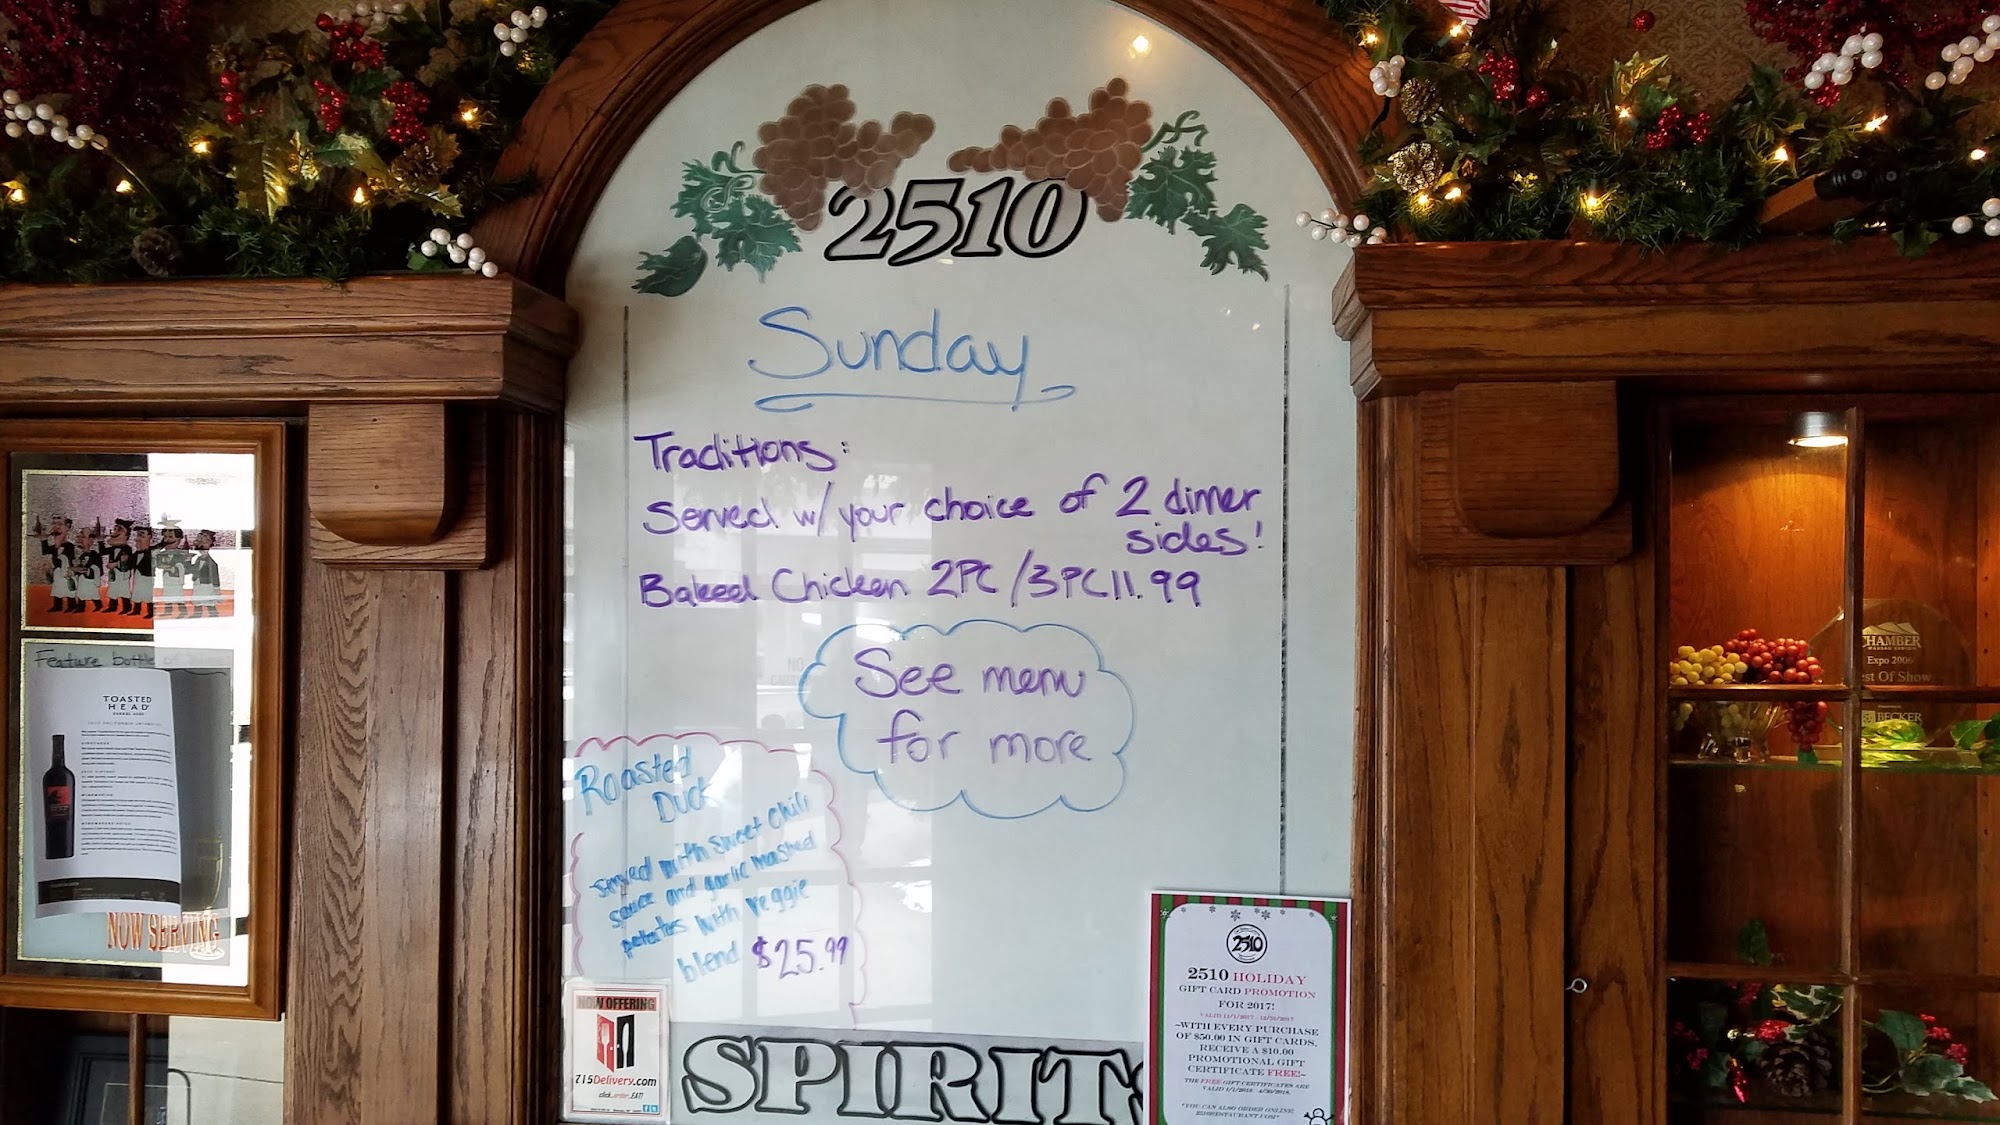 2510
Sunday
Traditions:
Served w/ your choice of 2 dinner
sides!
Baked Chicken 2PC/3PC 11.99
See menu
for more
Roasted
Duck
served with sweet chili
sauce and garlic mashed
potatoes with veggie
blend $25.99
SPIRITS
NOW OFFERING
715Delivery.com
click..order..EAT!
2510
2510 HOLIDAY
GIFT CARD PROMOTION
FOR 2017!
VALID 11/1/2017 - 12/31/2017
~WITH EVERY PURCHASE
OF $50.00 IN GIFT CARDS,
RECEIVE A $10.00
PROMOTIONAL GIFT
CERTIFICATE FREE!~
THE FREE GIFT CERTIFICATES ARE
VALID 1/1/2018 - 4/30/2018.
*YOU CAN ALSO ORDER ONLINE:
2510RESTAURANT.COM*
Feature bottle of
TOASTED
HEAD
NOW SERVING
CHAMBER
Expo 2006
est Of Show
BECKER